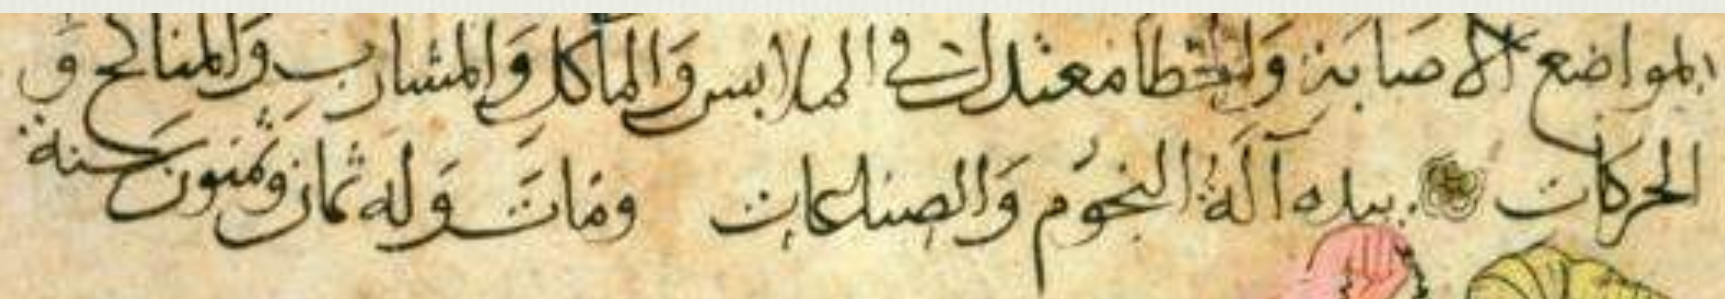 بمواضع الاصابة والخطا معتدل في الملابس والمآكل والمشارب والمناكح و
الحركات بيده آلة النجوم والصناعات ومات وله ثمان وثمنون سنة